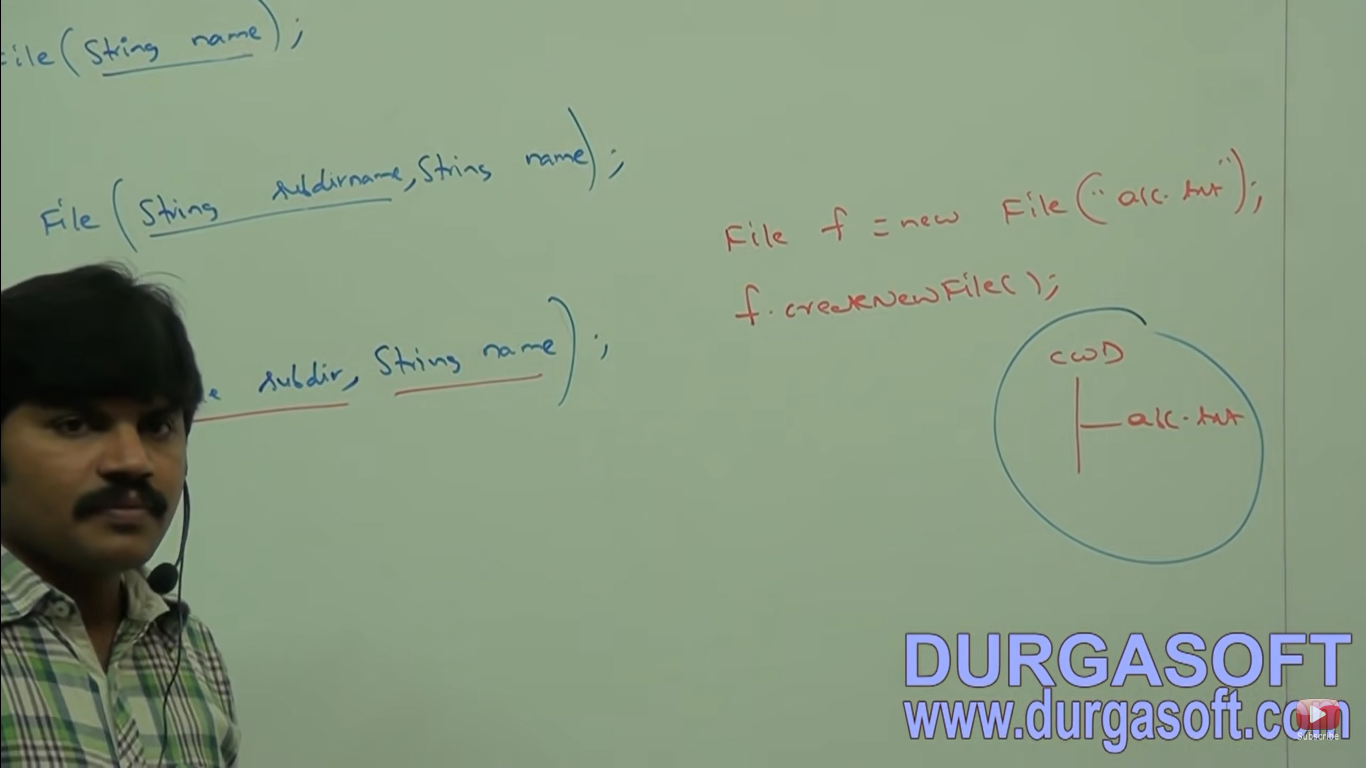 File(String name);
File (String subdirname, String name);
e subdir, String name);
File f = new File("abc.txt");
f.createNewFile();
CWD
abc.txt
DURGASOFT
www.durgasoft.com
Subscribe